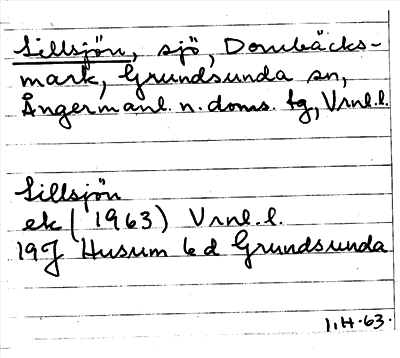 Sillsjön, sjö, Dombäcks-
mark, Grundsunda sn,
Ångermanl. n. doms. tg, Vrnl.l.
Sillsjön
ek (1963) Vrnl.l.
19J Husum 6d Grundsunda
I.H.63.